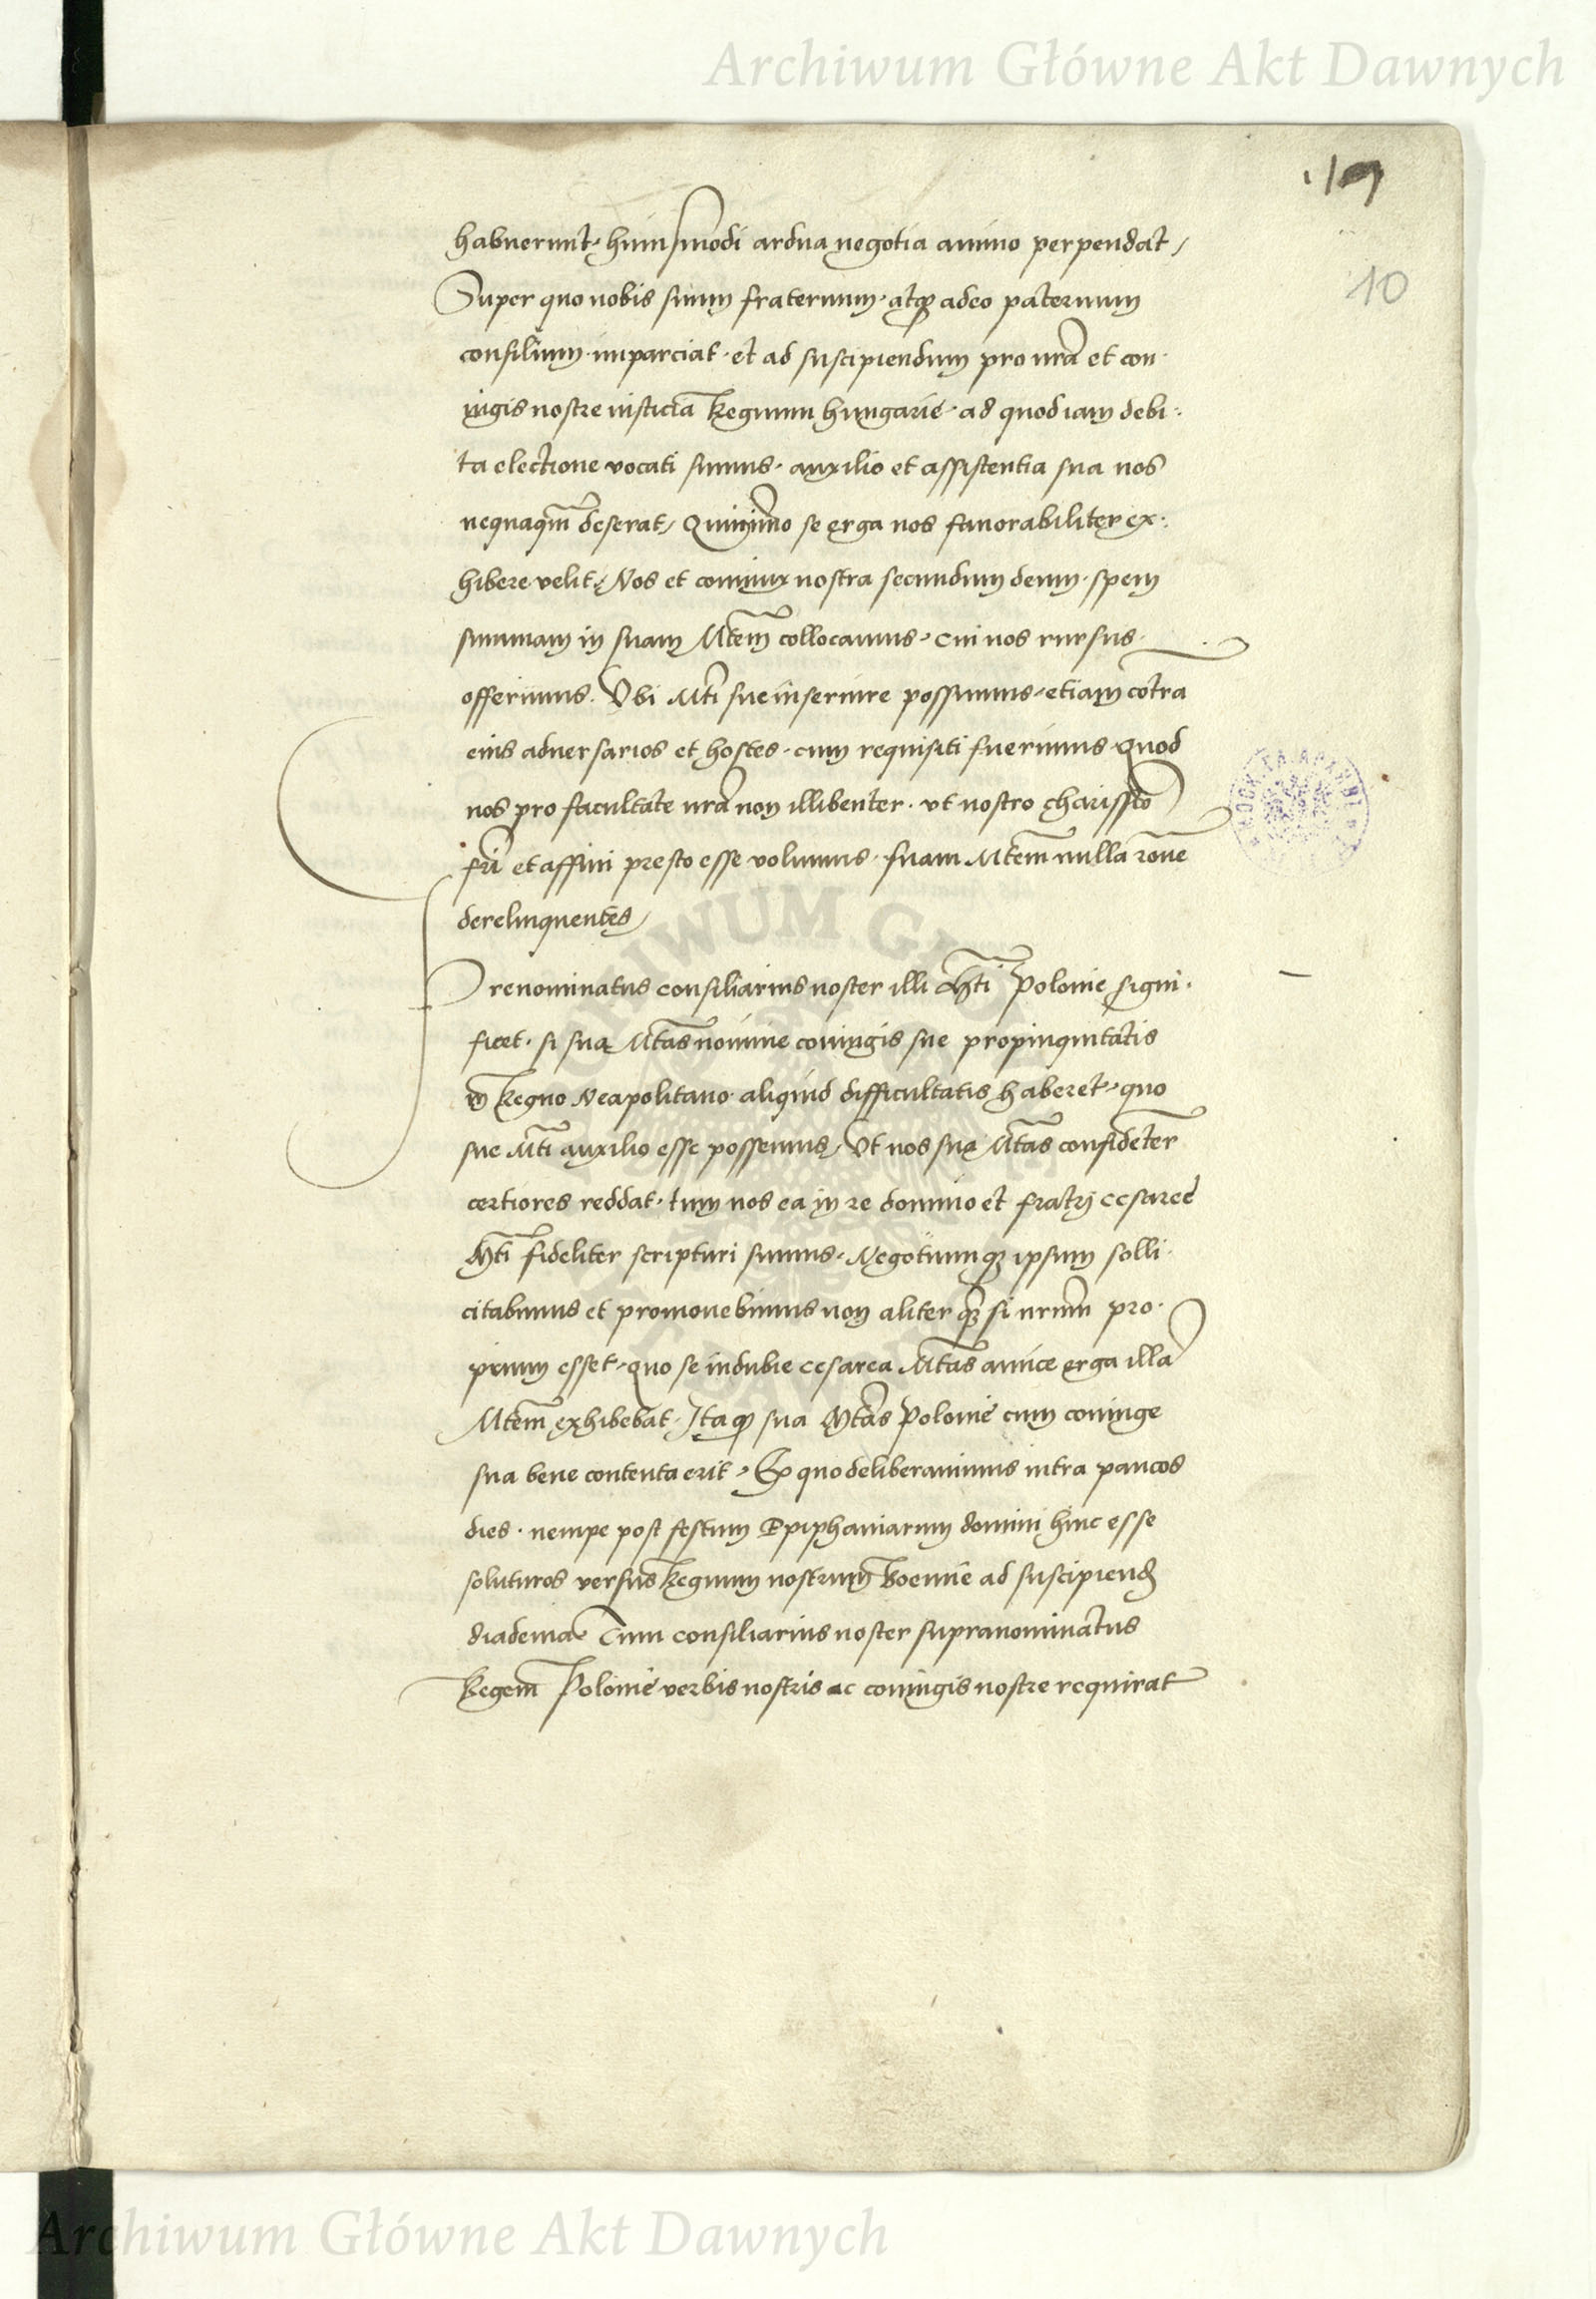 Archiwum Główne Akt Dawnych
10
habuerunt. huiusmodi ardua negotia animo perpendat,
Super quo nobis suum fraternum. atq adeo paternum
consilium. imparciat. et ad suscipiendum pro nra et con.
iugis nostre iusticia Regnum hungarie. ad quod iam debi:
ta electione vocati sumus. auxilio et assistentia sua nos
nequaqm deserat, Quinimo se erga nos fauorabiliter ex:
hibere velit, Nos et coniunx nostra secundum deum. spem
summam in suam Mtem collocamus. cui nos rursus.
offerimus. Vbi Mti sue inseruire possumus. etiam cotra
eius aduersarios et hostes. cum requisiti fuerimus. quod
nos pro facultate nra non illibenter. vt nostro charissto
fri et affini presto esse volumus. suam Mtem nulla rone
derelinquentes,
Prenominatus consiliarius noster illi Mti Polonie signi.
ficet. si sua Mtas nomine coniugis sue propinquitatis
in Regno Neapolitano aliquid difficultatis haberet. quo
sue Mti auxilio esse possemus, Vt nos sua Mtas confideter
certiores reddat. tum nos ea in re domino et fratri cesaree
Mti fideliter scripturi sumus. Negotiumq ipsum solli.
citabimus et promouebimus non aliter q si nrum pro.
prium esset. quo se indubie cesarea Mtas amice erga illa
Mtem exhibebat. Itaq sua Mtas Polonie cum coniuge
sua bene contenta erit. Ex quo deliberauimus intra paucos
dies. nempe post festum Epiphaniarum domini hinc esse
soluturos versus Regnum nostrum Boemie ad suscipiend
diadema. Tum consiliarius noster supranominatus
Regem Polonie verbis nostris ac coniugis nostre requirat
Archiwum Główne Akt Dawnych